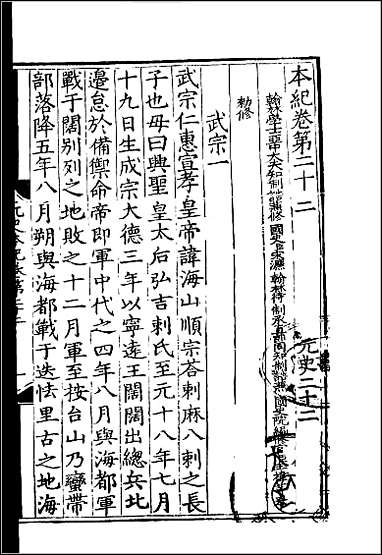 本紀卷第二十二
元史二十二
翰林學士亞中大夫知制誥兼修國史臣宋濂翰林待制承直郎同知制誥兼國史院編修官臣王禕奉
勑修
武宗一
武宗仁惠宣孝皇帝諱海山順宗荅剌麻八剌之長
子也母曰興聖皇太后弘吉剌氏至元十八年七月
十九日生成宗大德三年以寧遠王闊闊出總兵北
邊怠於備禦命帝即軍中代之四年八月與海都軍
戰于闊別列之地敗之十二月軍至按台山乃蠻帶
部落降五年八月朔與海都戰于迭怯里古之地海